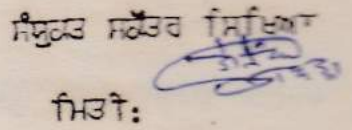 ਸੰਯੁਕਤ ਸਕੱਤਰ ਸਿੱਖਿਆ
ਮਿਤੀ: